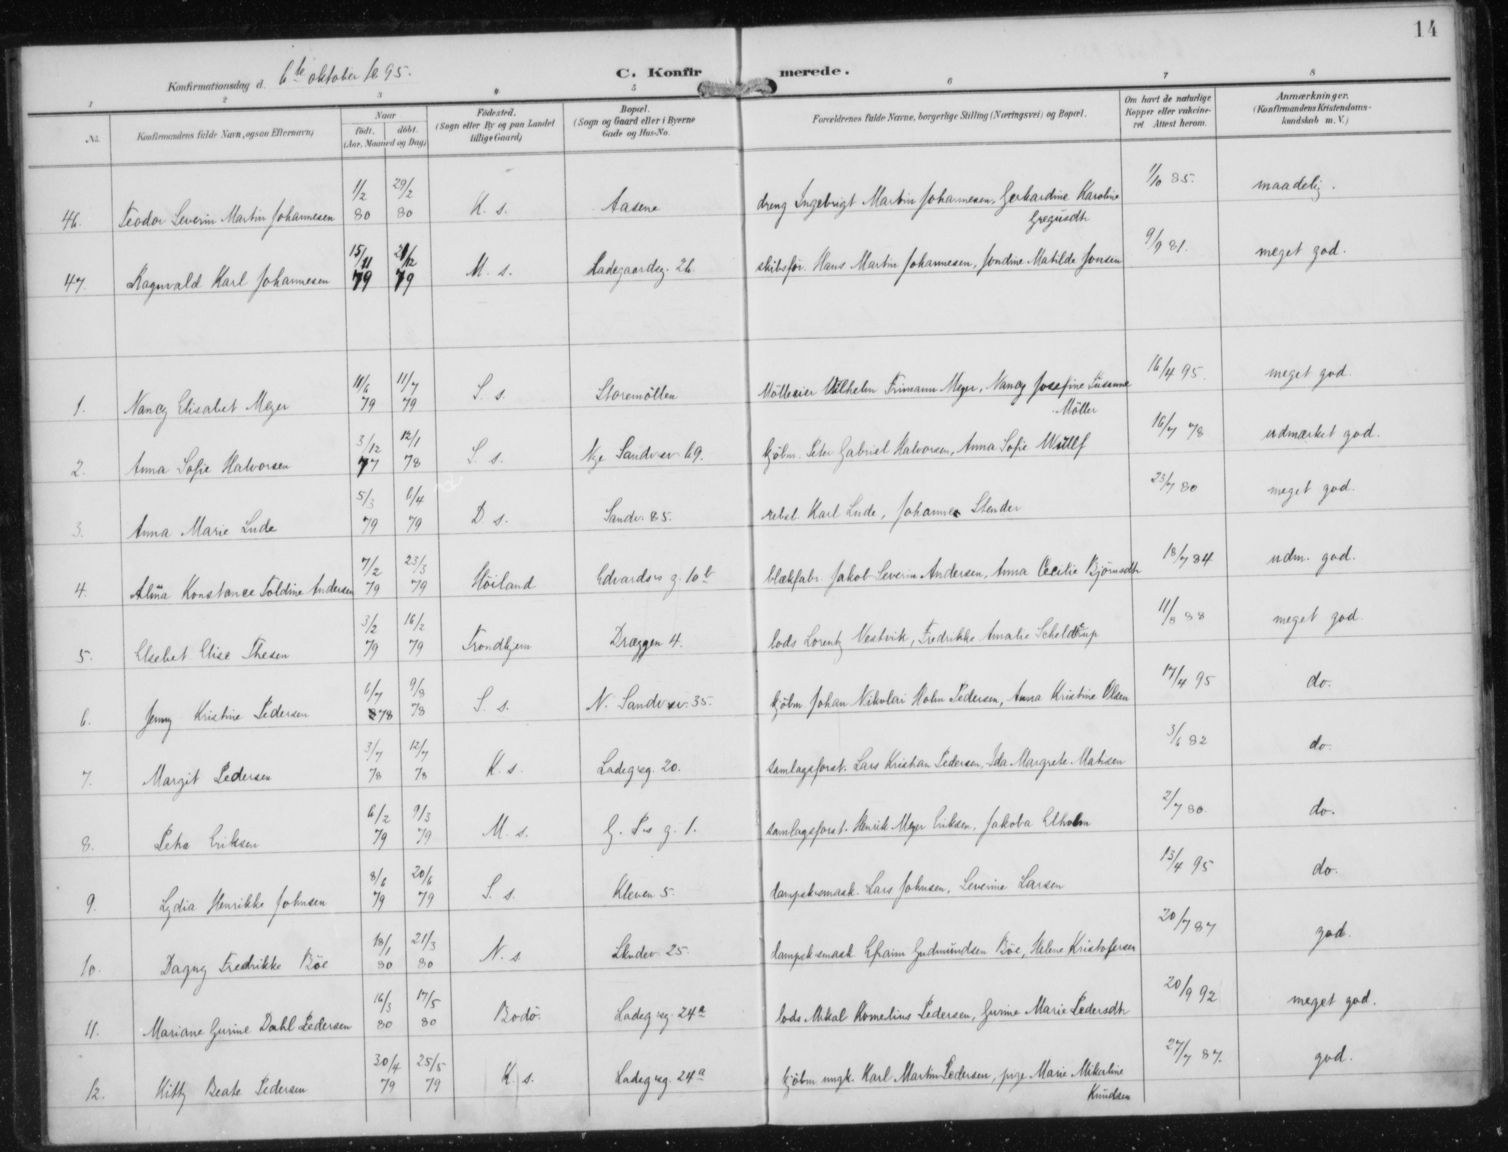 14
Konfirmationsdag d. 6te oktober 1895.
C. Konfirmerede.
1 2 3 4 5 6 7 8
No. Konfirmandens fulde Navn, ogsaa Efternavn) Naar født. døbt. (Aar, Maaned og Dag) Fødested. (Sogn eller By og paa Landet tillige Gaard) Bopæl. (Sogn og Gaard eller i Byerne Gade og Hus-No. Forældrenes fulde Navne, borgerlige Stilling (Næringsvei) og Bopæl. Om havt de naturlige Kopper eller vakcineret Attest herom. Anmærkninger. (Konfirmandens Kristendomskundskab m. V.)
46. Teodor Severin Martin Johannesen 1/2 80 29/2 80 K. s. Aasene dreng Ingebrigt Martin Johannesen, Gerhardine Karoline Gregusdtr 1/10 85. maadelig.
47. Ragnvald Karl Johannesen 15/11 79 21/12 79 M. s. Ladegaardsg. 26. skibsfør. Hans Martin Johannesen, Jondine Matilde Jonsen 9/9 81. meget god.
1. Nancy Elisabet Meyer 11/6 79 11/7 79 S. s. Storemøllen Mølleeier Wilhelm Frimann Meyer, Nancy Josefine Susanne Møller 16/4 95. meget god.
2. Anna Sofie Halvorsen 3/12 77 12/1 78 S. s. Nye Sandvsv. 69. kjøbm. Peter Gabriel Halvorsen, Anna Sofie Wulff 16/7 78 udmærket god.
3. Anna Marie Lude 5/3 79 6/4 79 D. s. Sandv. 85. rebsl. Karl Lude, Johanne Stender 23/7 80 meget god.
4. Alma Konstance Toldine Andersen 7/2 79 23/3 79 Høiland Edvardsens g. 10b blikfabr. Jakob Severin Andersen, Anna Cecilie Bjørnsdtr 18/7 84 udm. god.
5. Elsebet Elise Thesen 3/2 79 16/2 79 Trondhjem Dræggen 4. lods Lorentz Vestvik, Fredrikke Amalie Scheldrup 11/8 88 meget god.
6. Jenny Kristine Pedersen 6/7 78 9/8 78 S. s. N. Sandvsv. 35. kjøbm. Johan Nikolai Holm Pedersen, Anna Kristine Olsen 17/4 95 do.
7. Margit Pedersen 3/7 78 12/7 78 K. s. Ladegsg. 20. samlagsforst. Lars Kristian Pedersen, Ida Margrete Matisen 3/6 82 do.
8. Petra Eriksen 6/2 79 9/3 79 M. s. g. 1. samlagsforst. Henrik Meyer Eriksen, Jakoba Elholm 2/7 80. do.
9. Lydia Henrikke Johnsen 8/6 79 20/6 79 S. s. Kleven 5. dampsksmask. Lars Johnsen, Severine Larsen 13/4 95 do.
10. Dagny Fredrikke Bøe 18/1 80 21/3 80 N. s Skudev. 25. dampsksmask. Efraim Gudmundsen Bøe, Helene Kristofersen 20/7 87 god.
11. Mariane Gurine Dahl Pedersen 16/3 80 17/5 80 Bodø. Ladegsg. 24a lods Mikal Kornelius Pedersen, Gurine Marie Pedersdtr 20/9 92 meget god.
12. Kitty Beate Pedersen 30/4 79 25/5 79 K. s. Ladegsg. 24a kjøbm. ungk. Karl Martin Pedersen, pige Marie Mikaline Knudsen 27/7 87. god.